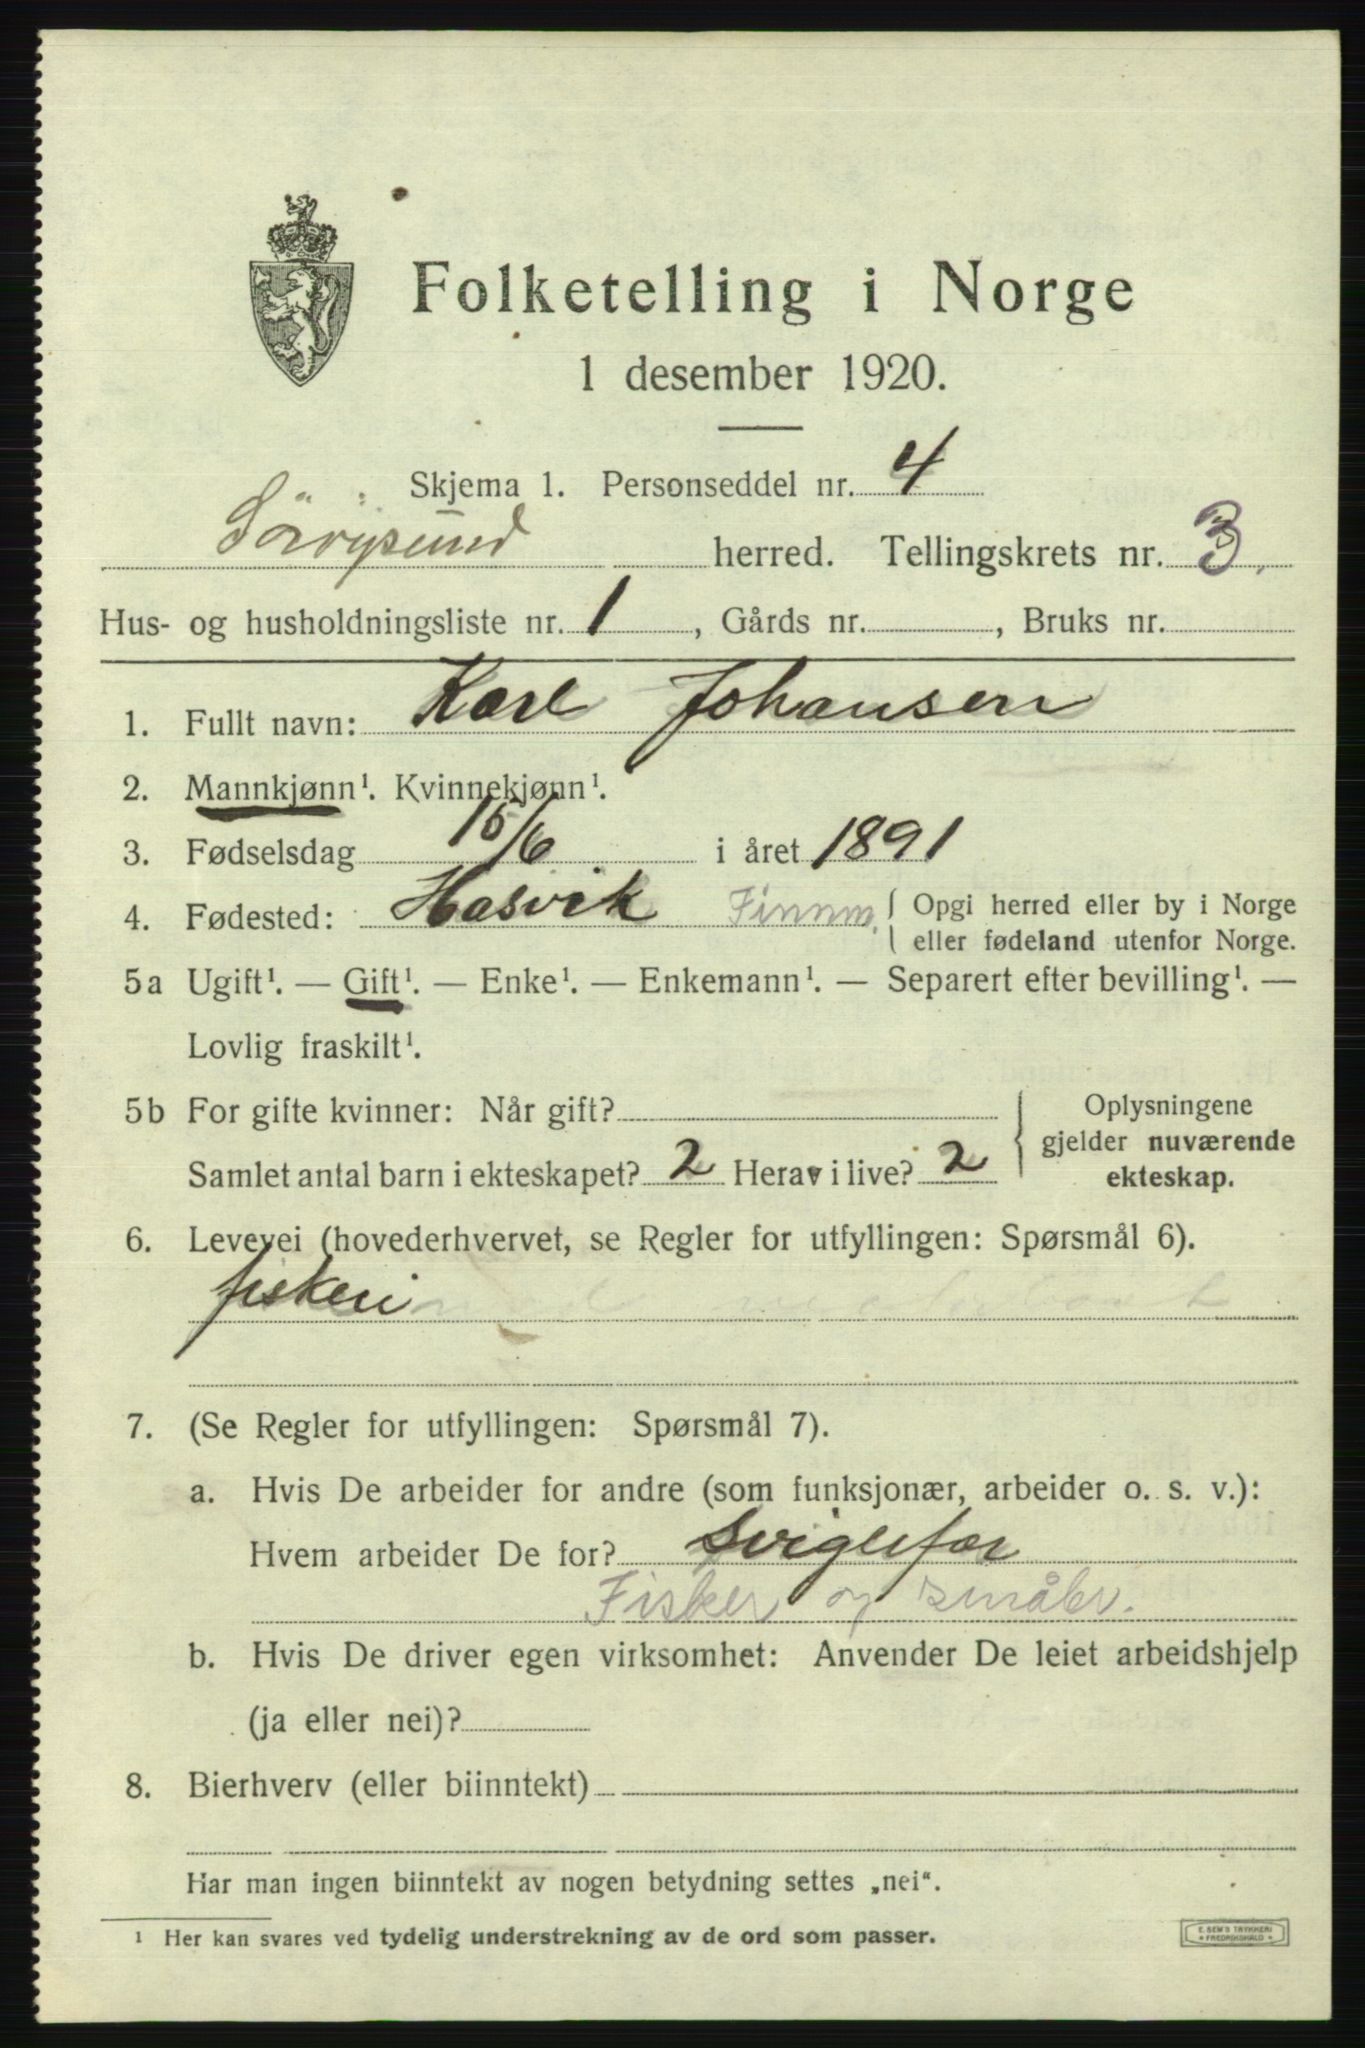 Folketelling i Norge
1 desember 1920.
Skjema 1. Personseddel nr. 4
Sörøysund herred. Tellingskrets nr. 3.
Hus- og husholdningsliste nr. 1, Gårds nr. , Bruks nr.
1. Fullt navn: Karl Johansen
2. Mannkjønn¹. Kvinnekjønn¹.
3. Fødselsdag 15/6 i året 1891
4. Fødested: Hasvik Finnm. { Opgi herred eller by i Norge
eller fødeland utenfor Norge.
5a Ugift¹. — Gift¹. — Enke¹. — Enkemann¹. — Separert efter bevilling¹. —
Lovlig fraskilt¹.
5b For gifte kvinner: Når gift? } Oplysningene
gjelder nuværende
Samlet antal barn i ekteskapet? 2 Herav i live? 2
ekteskap.
6. Levevei (hovederhvervet, se Regler for utfyllingen: Spørsmål 6).
fiskeri
7. (Se Regler for utfyllingen: Spørsmål 7).
a. Hvis De arbeider for andre (som funksjonær, arbeider o. s. v.):
Hvem arbeider De for? svigerfar
Fisker og småbr.
b. Hvis De driver egen virksomhet: Anvender De leiet arbeidshjelp
(ja eller nei)?
8. Bierhverv (eller biinntekt)
Har man ingen biinntekt av nogen betydning settes „nei“.
¹ Her kan svares ved tydelig understrekning av de ord som passer.
E. SEM'S TRYKKERI
FREDRIKSHALD